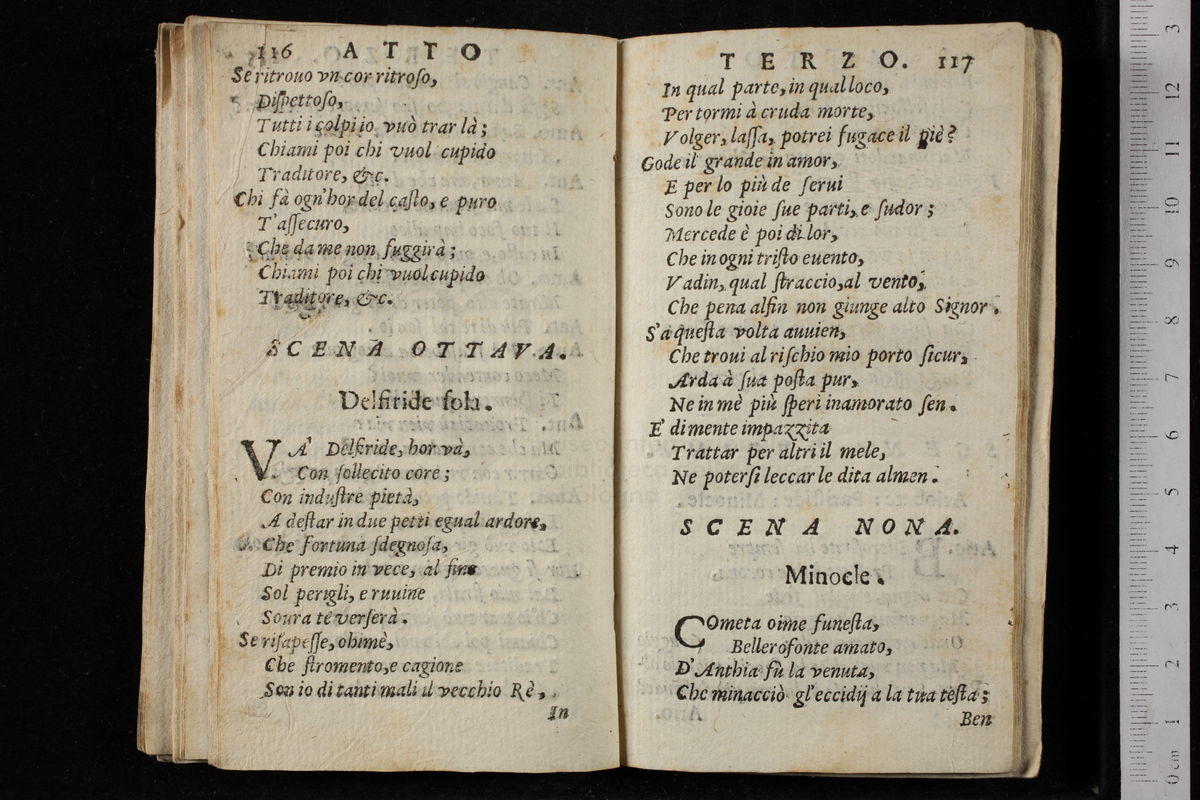 116 ATTO
Se ritrouo vn cor ritroso,
Dispettoso,
Tutti i colpi io vuò trar là;
Chiami poi chi vuol cupido
Traditore, &c.
Chi fà ogn'hor del casto, e puro
T'assecuro,
Che da me non fuggirà;
Chiami poi chi vuol cupido
Traditore, &c.
SCENA OTTAVA.
Delfiride sola.
VA' Delfiride, hor và,
Con sollecito core;
Con industre pietà,
A destar in due petti egual ardore,
Che fortuna sdegnosa,
Di premio in vece, al fine
Sol perigli, e ruuine
Soura te verserà.
Se risapesse, ohimè,
Che stromento, e cagione
Son io di tanti mali il vecchio Rè,
In
TERZO. 117
In qual parte, in qual loco,
Per tormi à cruda morte,
Volger, lassa, potrei fugace il piè?
Gode il grande in amor,
E per lo più de serui
Sono le gioie sue parti, e sudor;
Mercede è poi di lor,
Che in ogni tristo euento,
Vadin, qual straccio, al vento,
Che pena alfin non giunge alto Signor.
S'a questa volta auuien,
Che troui al rischio mio porto sicur,
Arda à sua posta pur,
Ne in mè più speri inamorato sen.
E' di mente impazzita
Trattar per altri il mele,
Ne potersi leccar le dita almen.
SCENA NONA.
Minocle.
Cometa oime funesta,
Bellerofonte amato,
D'Anthia fù la venuta,
Che minacciò gl'eccidij a la tua testa;
Ben
0 cm 1 2 3 4 5 6 7 8 9 10 11 12 13